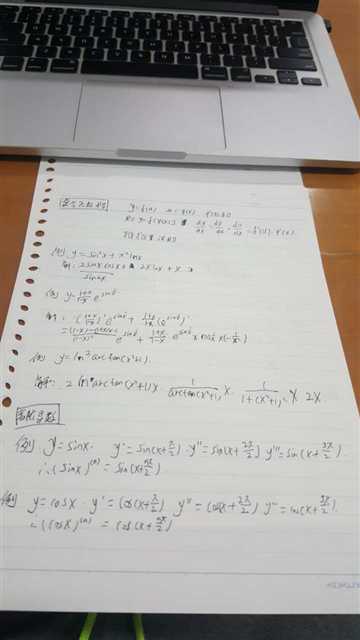 复合函数求导
y=f(u) u=φ(x)
则 y=f[φ(x)] dy/dx = dy/du · du/dx = f'(u)·φ'(x)
例 y=sin²x+x²lnx
解: 2sinxcosx + 2xlnx + x
sin2x
例 y=(1+x)/(1-x) e^(sin 1/x)
解: ((1+x)/(1-x))' e^(sin 1/x) + (1+x)/(1-x) (e^(sin 1/x))'
e^(sin 1/x) + (1+x)/(1-x) e^(sin 1/x) × cos 1/x × (-1/x²)
例 y=ln²arctan(x²+1).
解: 2 ln arctan(x²+1) × 1/arctan(x²+1) × 1/(1+(x²+1)²) × 2x
高阶导数
例) y=sinx. y'=sin(x+π/2) y''=sin(x+2π/2) y'''=sin(x+3π/2)
∴(sinx)^(n) = sin(x+nπ/2)
例) y=cosx. y'=cos(x+π/2) y''=cos(x+2π/2) y'''=cos(x+3π/2).
∴(cosx)^(n) = cos(x+nπ/2)